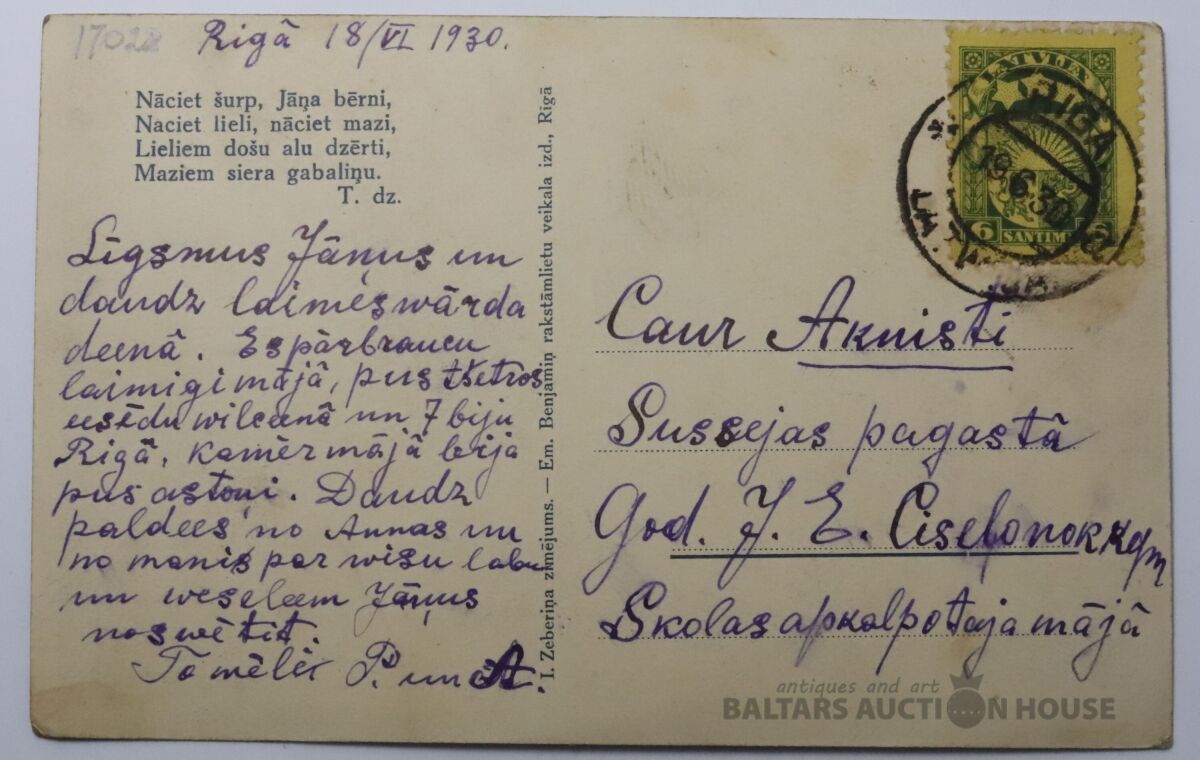 17028
Rigā 18/VI 1930.
Nāciet šurp, Jāņa bērni,
Naciet lieli, nāciet mazi,
Lieliem došu alu dzērti,
Maziem siera gabaliņu.
T. dz.
Līgsmus Jāņus un
daudz laimes wārda
deenā. Es pārbraucu
laimigi mājā, pus tšetros
eesēdu wilceenā un 7 biju
Rigā, kamēr mājā bija
pus astoņi. Daudz
paldees no Annas un
no manis par wisu labu
un weseleem Jāņus
noswētit.
To mēlēs P. un A.
I. Zeberiņa zīmējums. — Em. Benjamiņ rakstāmlietu veikala izd., Rīgā
LATVIJA
6 SANTIMI 6
RIGA
19.6.30
Caur Aknisti
Sussejas pagastā
God. J. E.
Skolas apkalpotaja mājā
antiques and art
BALTARS AUCTION HOUSE